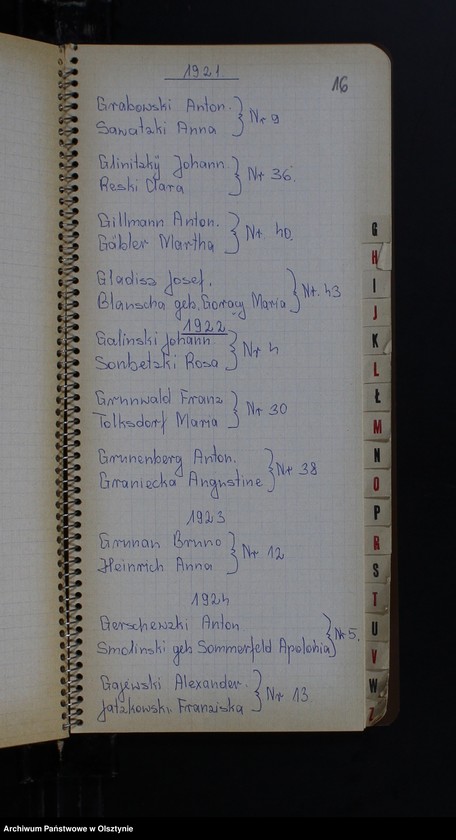 1921.
16
Grabowski Anton. } Nr 9
Sawatzki Anna
Glinitzky Johann } Nr 36.
Reski Clara
Gillmann Anton. } Nr. 40.
Göbler Martha
Gladisz Josef. } Nr. 43
Blanscha geb. Gorazy Maria
1922
Galinski Johann } Nr 4
Sonbetzki Rosa
Grunwald Franz } Nr 30
Tolksdorf Maria
Grunenberg Anton. } Nr 38
Graniecka Angustine
1923
Grunan Bruno } Nr 12
Heinrich Anna
1924
Gerschewzki Anton } Nr 5.
Smolinski geb Sommerfeld Apolonia
Gajewski Alexander. } Nr 13
Jatzkowski Franziska
G
H
I
J
K
L
Ł
M
N
O
P
R
S
T
U
V
W
Z
Archiwum Państwowe w Olsztynie